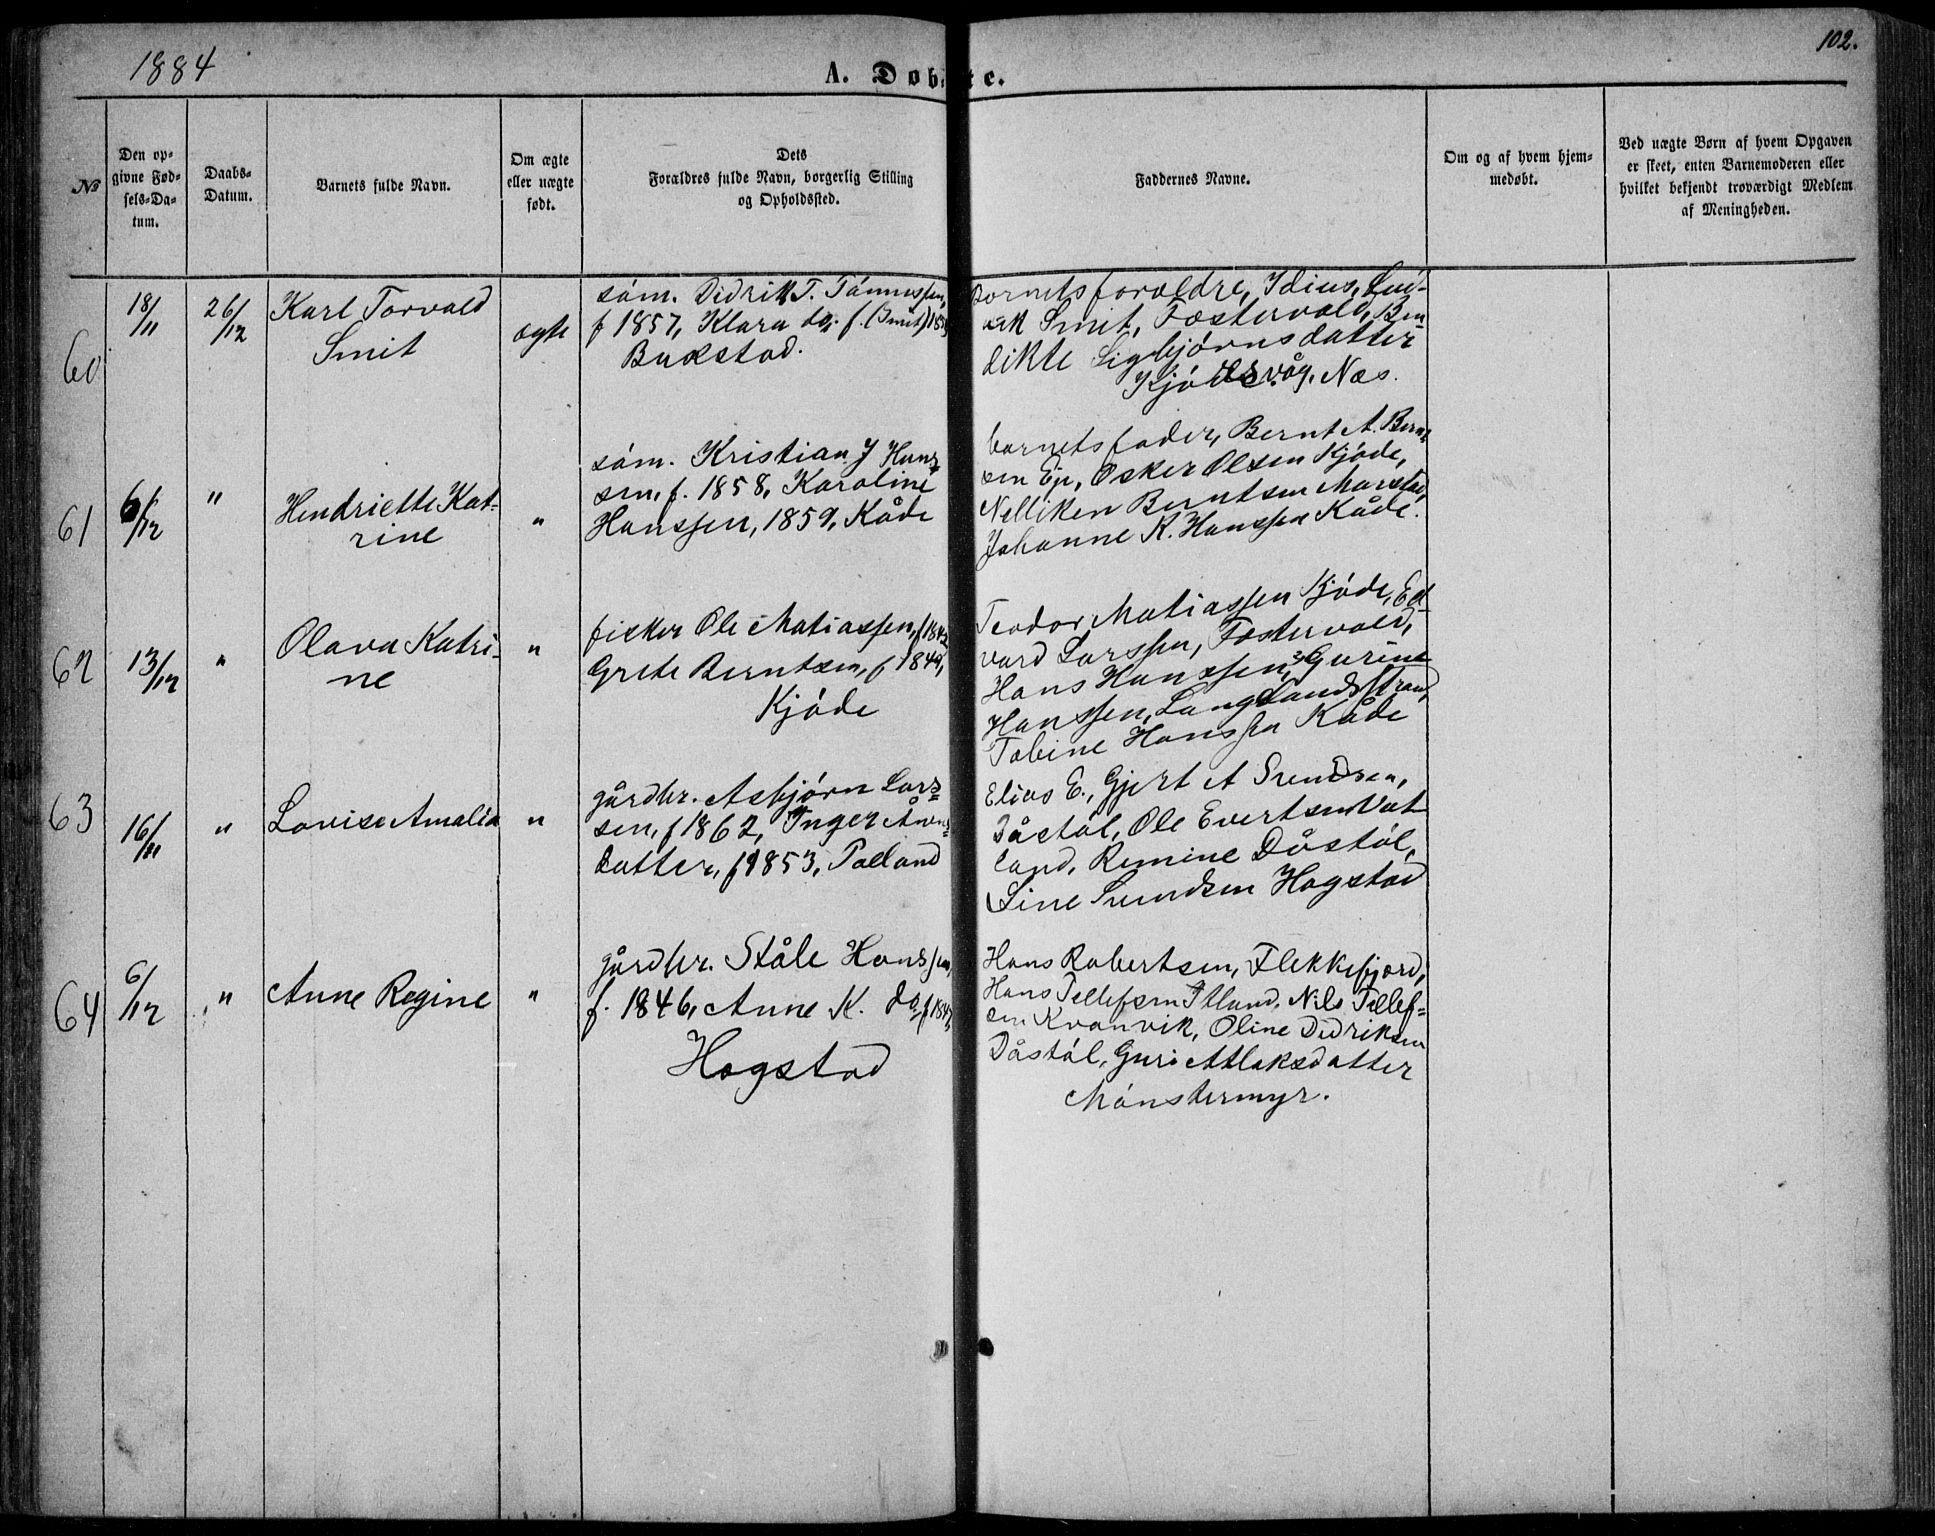 1884
A. Døbte.
102.
№
Den op-
givne Fød-
sels-Da-
tum.
Daabs-
Datum.
Barnets fulde Navn.
Om ægte
eller uægte
født.
Dets
Forældres fulde Navn, borgerlig Stilling
og Opholdssted.
Faddernes Navne.
Om og af hvem hjem-
medøbt.
Ved uægte Børn af hvem Opgaven
er skeet, enten Barnemoderen eller
hvilket bekjendt troværdigt Medlem
af Menigheden.
60
18/11
26/12
Karl Torvald
Smit
ægte
søm. Didrik T. Tønnessen,
f 1857, Klara do. f. (Smit)
Bukstad.
Barnets forældre, Idius, Lud-
Smit, Fæstervold, Ben
dikte Sigbjørnsdatter
Kjødesvåg, Næs.
61
6/12
"
Hendriette Kat-
rine
"
søm. Kristian J Hans-
sen, f. 1858, Karoline
Hanssen, 1859, Kåde
barnets fader, Bernt A. Bernt
sen Eje, Osker Olsen Kjøde,
Nelliken Berntsen Marstad,
Johanne K. Hanssen Kåde.
62
13/12
"
Olava Katri-
ne
"
fisker Ole Matiassen, f 1842
Grete Berntsen, f 1844,
Kjøde
Teodor Matiassen Kjøde, Ed-
vard Larssen, Fæstervold,
Hans Hanssen, Gurine
Hanssen, Langelandsstrand,
Tobine Hanssen Kåde
63
16/11
"
Lovise Amalia
"
gårdbr. Asbjørn Lars-
sen, f 1862, Inger Ånen
datter, f 1853, Polland
Elias E., Gjert A Svendsen,
Dåstøl, Ole Evertsen Vat
land, Remine Dåstøl,
Sine Svendsen Hogstad
64
6/12
"
Anne Regine
"
gårdbr. Ståle Hanssen,
f. 1846, Anne K. do. f 1847,
Hogstad
Hans Robertsen, Flekkefjord,
Hans Tellefsen Itland, Nils Tellef-
sen Kvanvik, Oline Didriksen
Dåstøl, Guri Atlaksdatter
Mønstermyr.